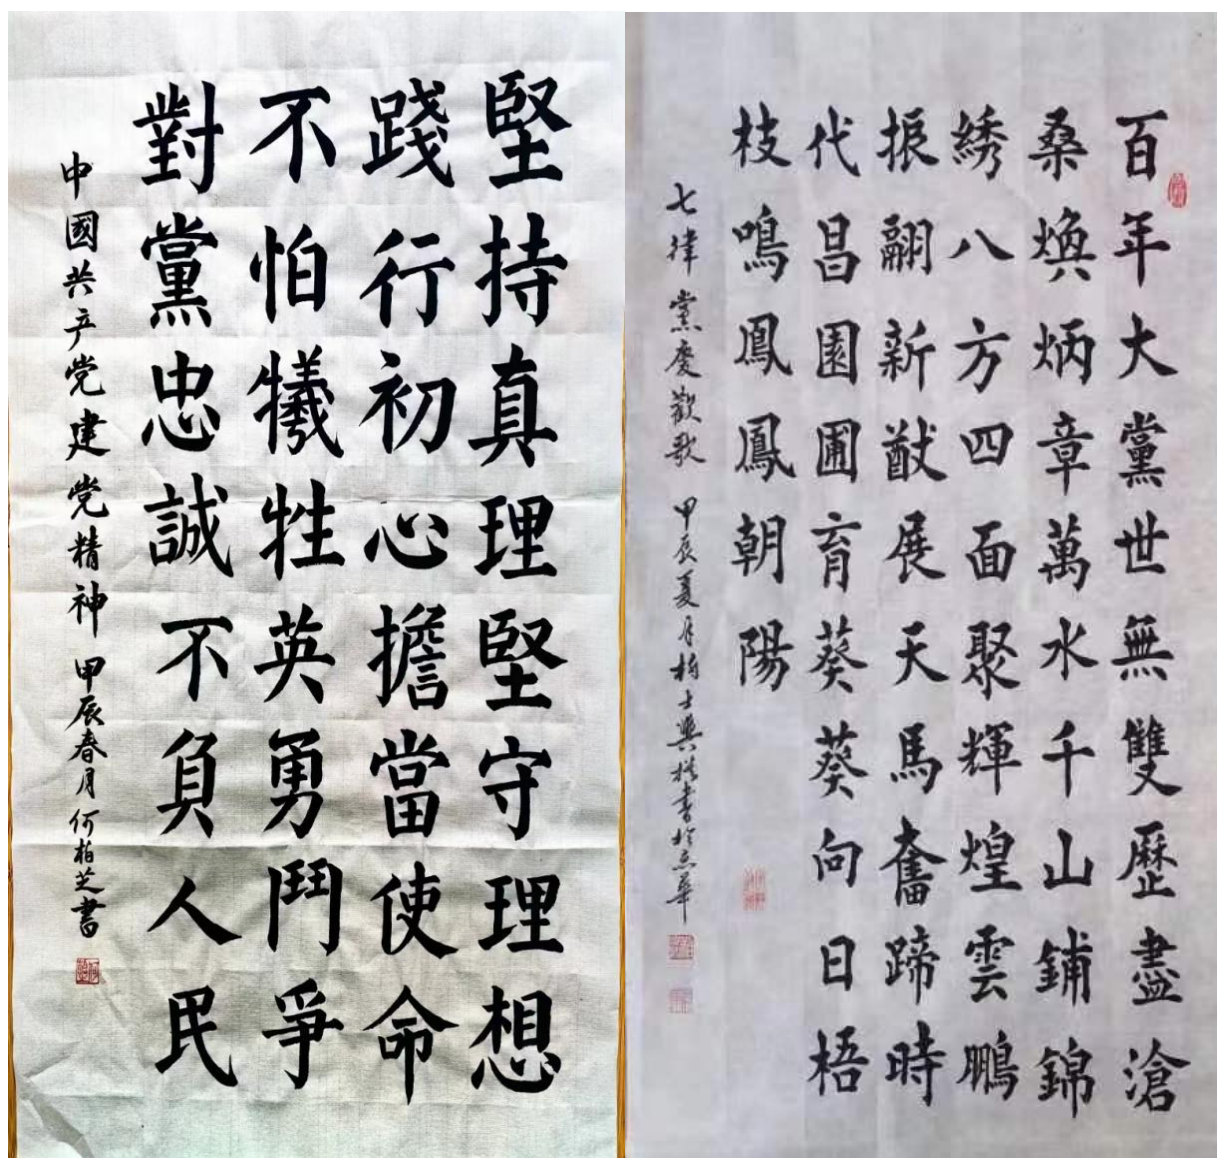 堅持真理堅守理想
踐行初心擔當使命
不怕犧牲英勇鬥爭
對黨忠誠不負人民
中國共产党建党精神 甲辰春月何柏芝書
百年大黨世無雙歷盡滄
桑煥炳章萬水千山鋪錦
綉八方四面聚輝煌雲鵬
振翮新猷展天馬奮蹄時
代昌園圃育葵葵向日梧
枝鳴鳳鳳朝陽
七律 黨慶歡歌 甲辰夏月士興撰書於京華